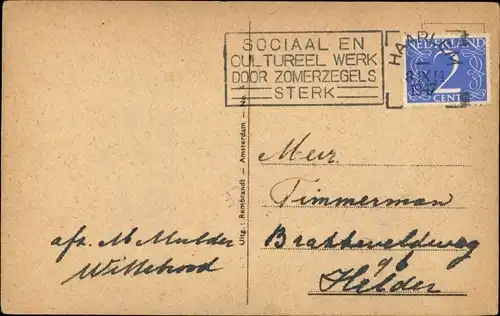 SOCIAAL EN
CULTUREEL WERK
DOOR ZOMERZEGELS
STERK
HAARLEM
1947
NEDERLAND
2
CENT
Uitg.: Rembrandt – Amsterdam – No.
Meur.
Timmerman
Brakkeveldweg
96
Helder
afz. M Mulder